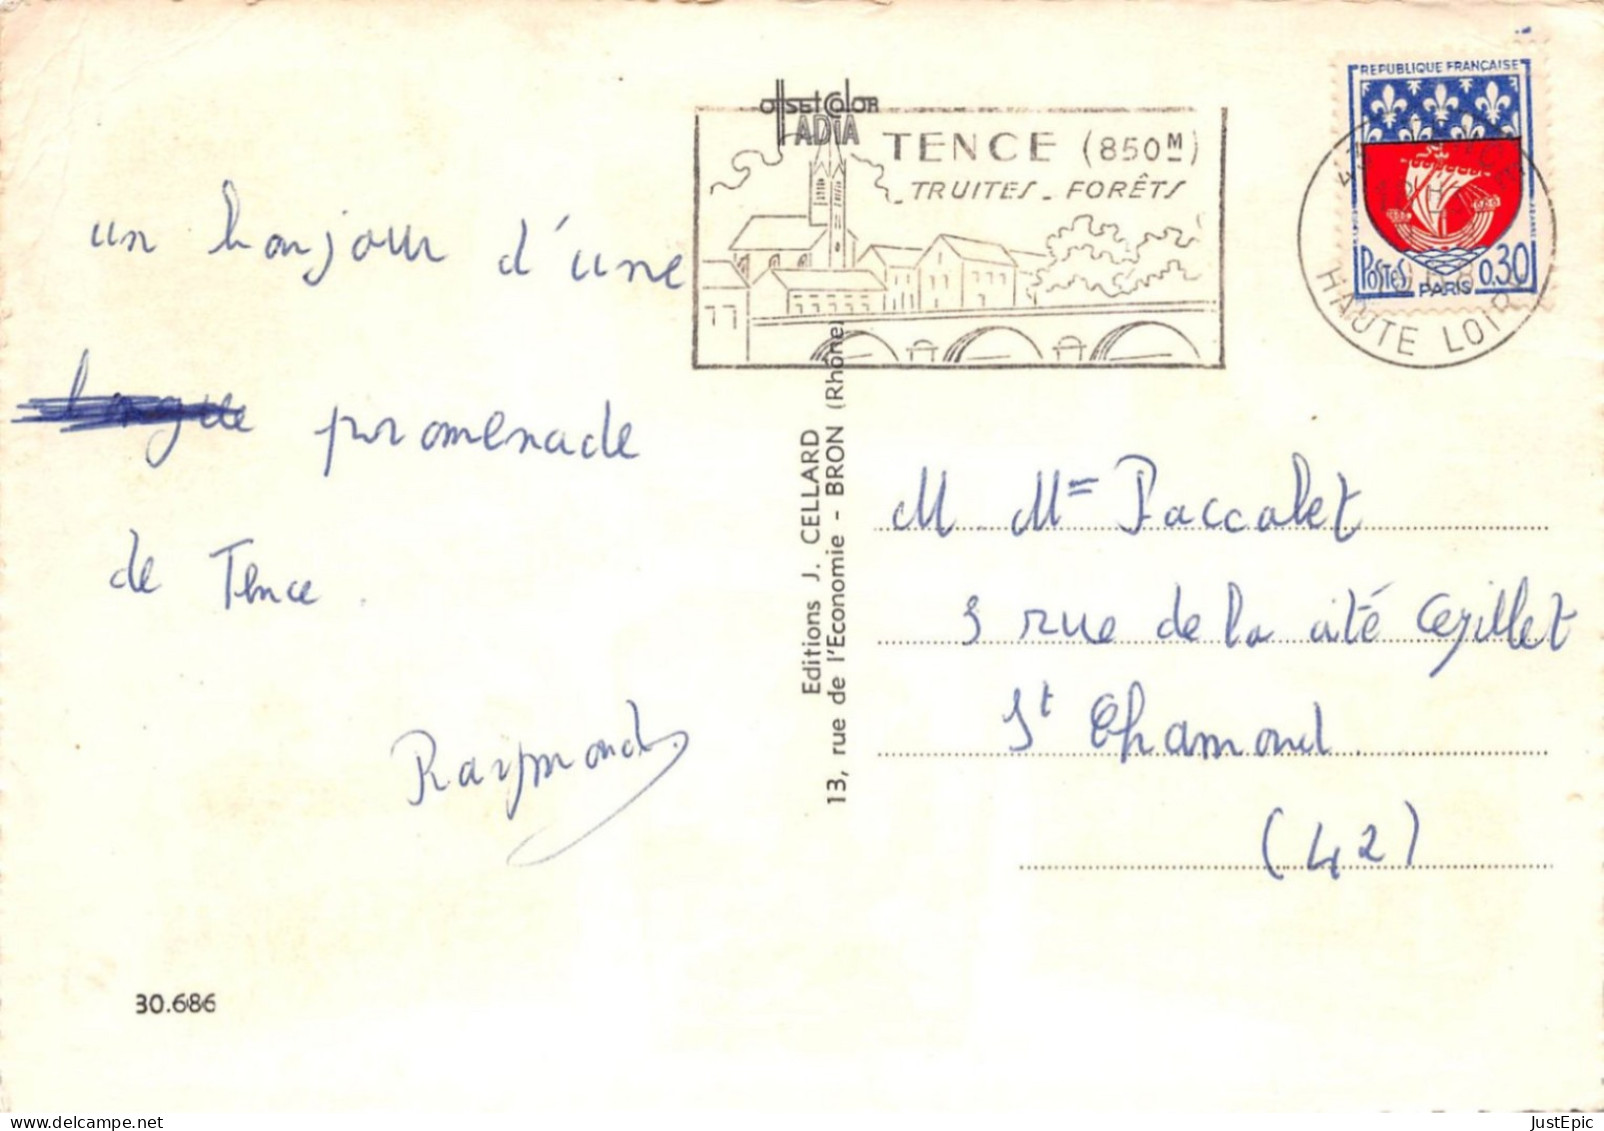 un bonjour d'une
longue promenade
de Tence.
Raymond.
30.686
Editions J. CELLARD
13, rue de l'Economie - BRON (Rhône)
offset color
IADIA
TENCE (850M)
TRUITES - FORÊTS
REPUBLIQUE FRANÇAISE
POSTES PARIS 0.30
43
HAUTE LOIRE
M. Mme Paccalet
3 rue de la cité
St Chamond
(42)
JustEpic